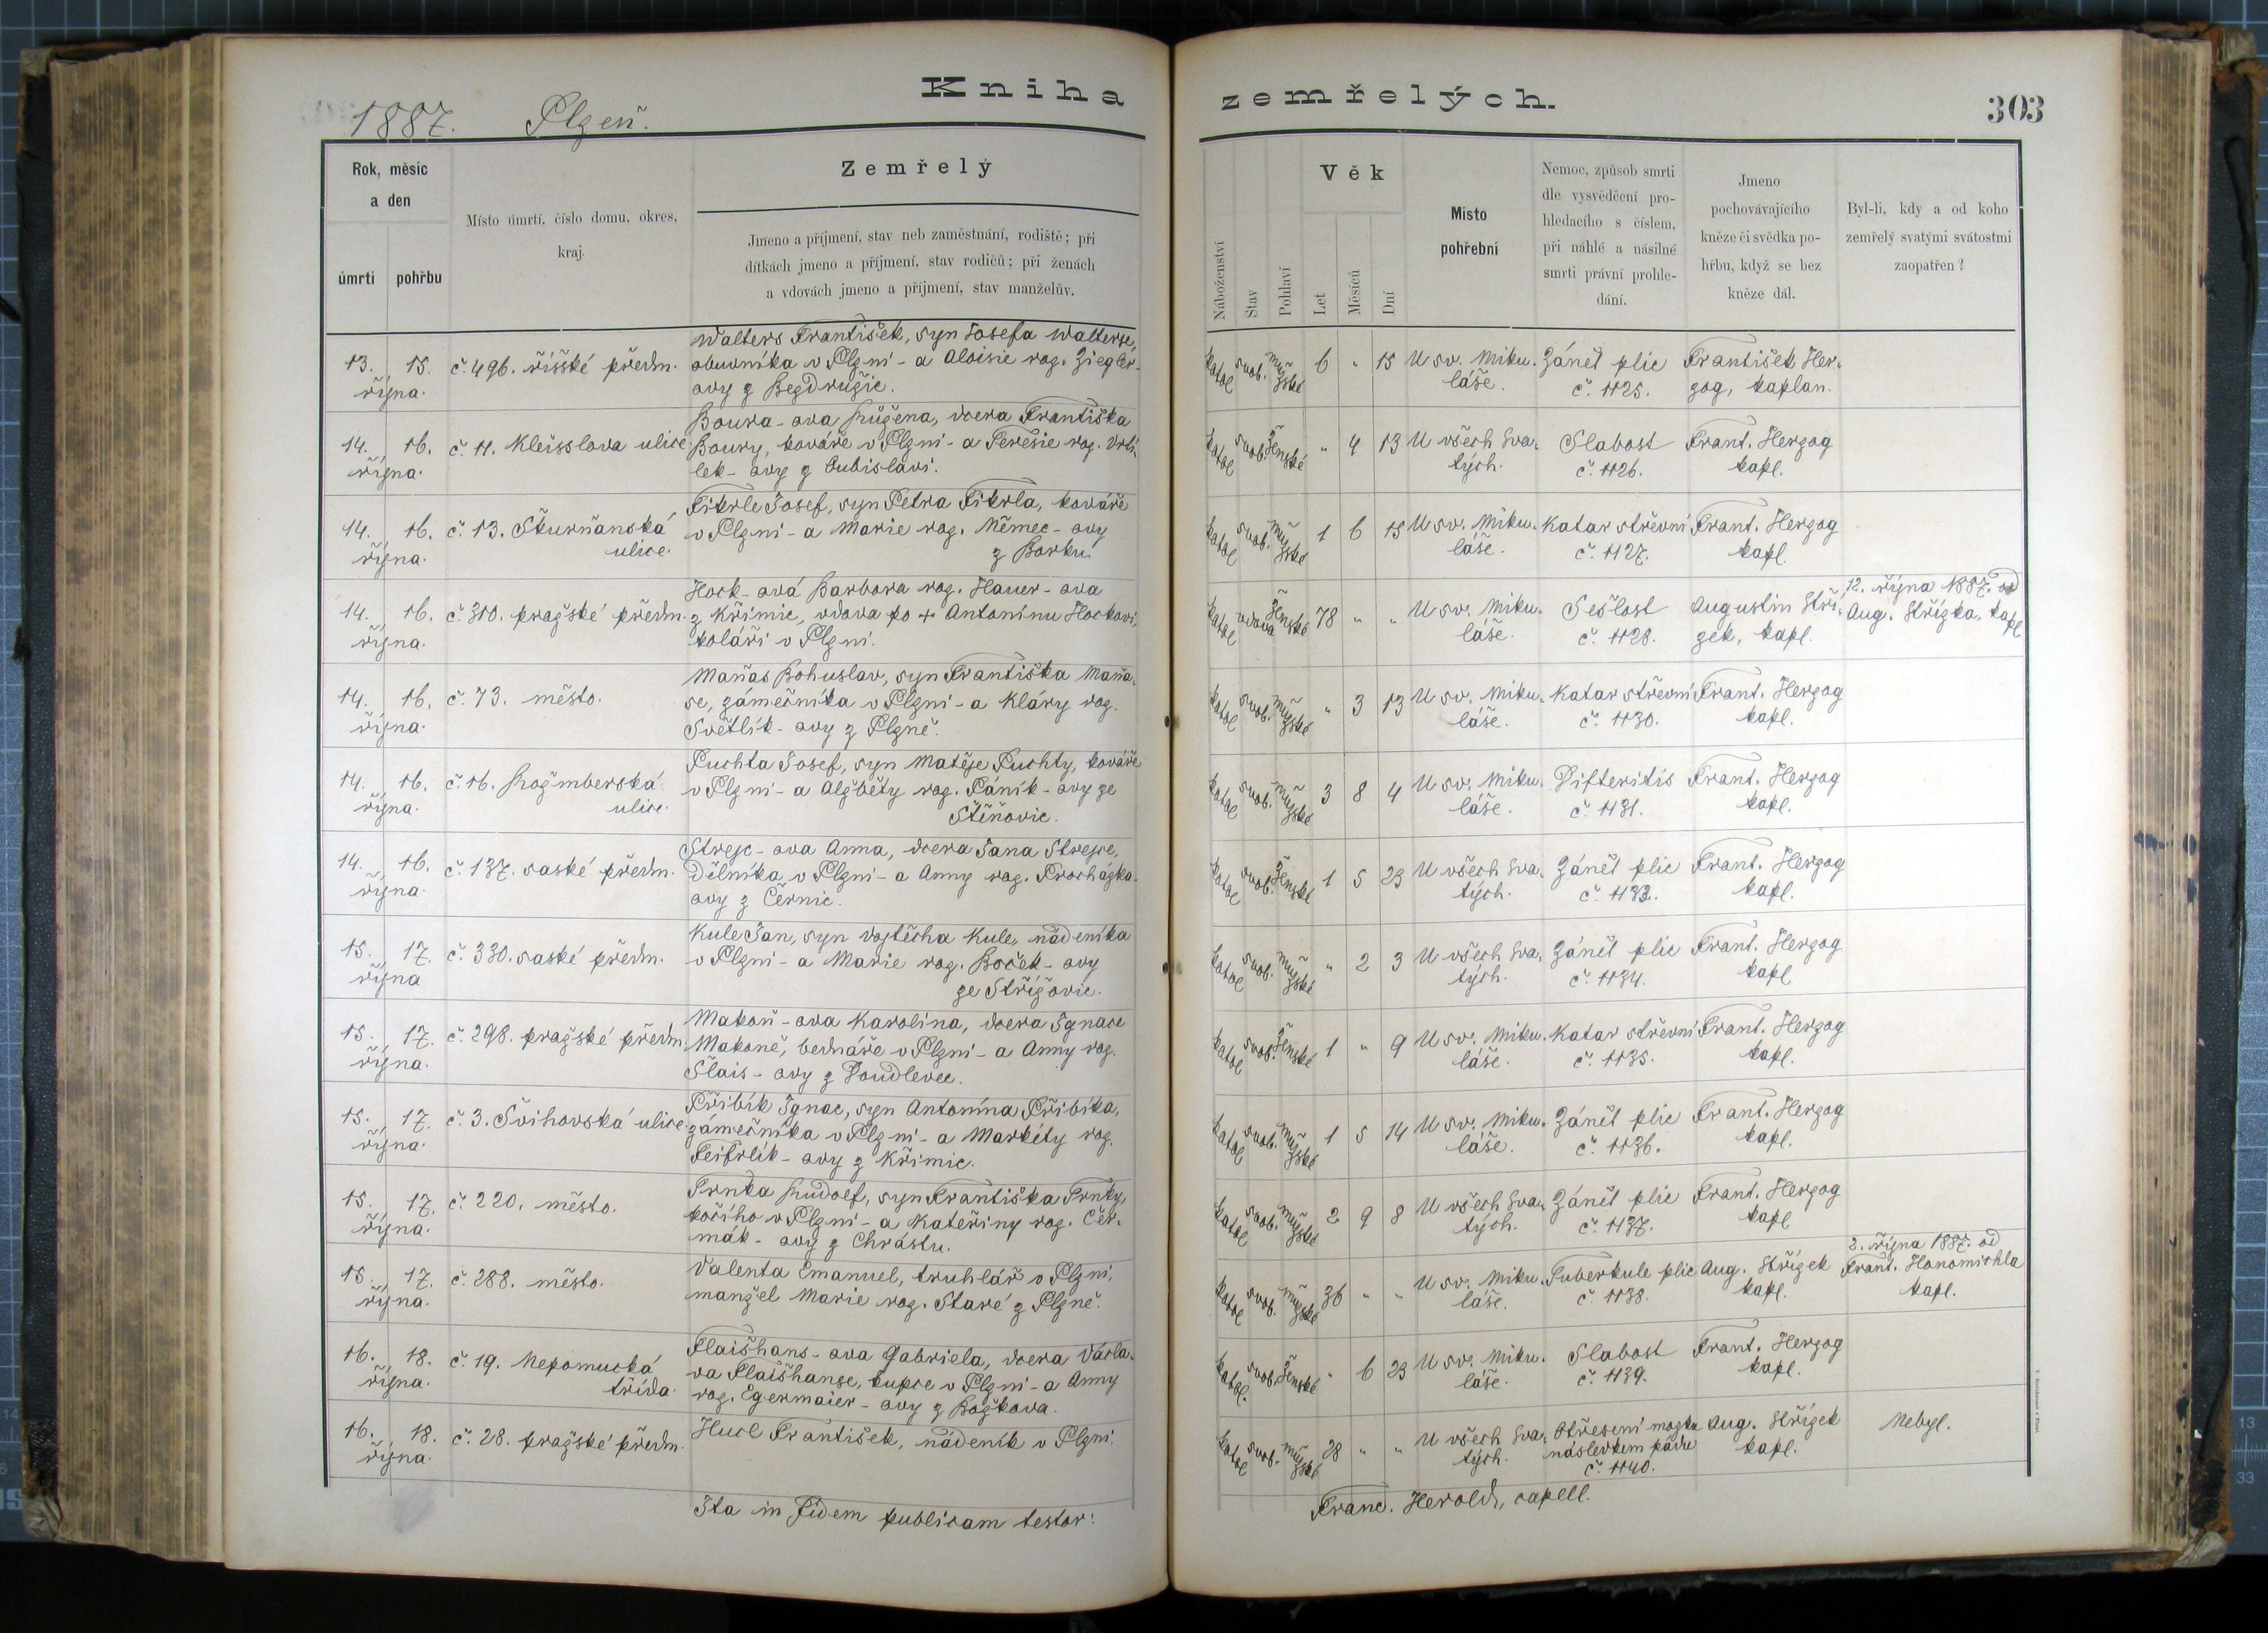 Kniha zemřelých.
303
1887. Plzeň.
Rok, měsíc a den
úmrtí
pohřbu
Místo úmrtí, číslo domu, okres, kraj.
Zemřelý
Jmeno a příjmení, stav neb zaměstnání, rodiště; při
dítkách jmeno a příjmení, stav rodičů; při ženách
a vdovách jmeno a příjmení, stav manželův.
Náboženství
Stav
Pohlaví
Věk
Let
Měsíců
Dní
Místo pohřební
Nemoc, způsob smrti
dle vysvědčení pro-
hledacího s číslem,
při náhlé a násilné
smrti právní prohle-
dání.
Jmeno
pochovávajícího
kněze či svědka po-
hřbu, když se bez
kněze dál.
Byl-li, kdy a od koho
zemřelý svatými svátostmi
zaopatřen?
13. 15. října. č. 496. říšské předm.
Walters František, syn Josefa Walterse,
obuvníka v Plzni - a Aloisie roz. Ziegler-
ovy z Bezdružic.
katol svob. mužské 6 " 15 U sv. Mikuláše. Zánět plic č. 1125. František Herzog, kaplan.
14. 16. října. č. 11. Kleisslova ulice.
Boura-ova Růžena, dcera Františka
Boury, kováře v Plzni - a Teresie roz. Vrti-
lek-ovy z Bubislavi.
katol svob. ženské " 4 13 U všech Svatých. Slabost č. 1126. Frant. Herzog kapl.
14. 16. října. č. 13. Škurňanská ulice.
Fikrle Josef, syn Petra Fikrla, kováře
v Plzni - a Marie roz. Němec-ovy
z Borku.
katol svob. mužské 1 6 15 U sv. Mikuláše. Katar střevní č. 1127. Frant. Herzog kapl.
14. 16. října. č. 310. pražské předm.
Hock-ová Barbora roz. Hauer-ova
z Křimic, vdova po + Antonínu Hockovi,
koláři v Plzni.
katol vdova ženské 78 " " U sv. Mikuláše. Sešlost č. 1128. Augustin Střízek, kapl. 12. října 1887. od Aug. Střízka, kapl
14. 16. října. č. 73. město.
Maňas Bohuslav, syn Františka Maňa-
se, zámečníka v Plzni - a Kláry roz.
Světlík-ovy z Plzně.
katol svob. mužské " 3 13 U sv. Mikuláše. Katar střevní č. 1130. Frant. Herzog kapl.
14. 16. října. č. 16. Rožmberská ulice.
Puchta Josef, syn Matěje Puchty, kováře
v Plzni - a Alžběty roz. Pánik-ovy ze
Štěňovic.
katol svob. mužské 3 8 4 U sv. Mikuláše. Difteritis č. 1131. Frant. Herzog kapl.
14. 16. října. č. 137. saské předm.
Strejc-ova Anna, dcera Jana Strejce,
Dělníka v Plzni - a Anny roz. Procházka-
ovy z Černic.
katol svob. ženské 1 5 23 U všech Svatých. Zánět plic č. 1133. Frant. Herzog kapl.
15. 17. října č. 330. saské předm.
Kule Jan, syn Vojtěcha Kule, nádeníka
v Plzni - a Marie roz. Boček-ovy
ze Střížovic.
katol svob. mužské " 2 3 U všech Svatých. Zánět plic č. 1134. Frant. Herzog kapl
15. 17. října. č. 298. pražské předm.
Makoň-ova Karolina, dcera Ignace
Makoně, bednáře v Plzni - a Anny roz.
Šlais-ovy z Doudlevec.
katol svob. ženské 1 " 9 U sv. Mikuláše. Katar střevní č. 1135. Frant. Herzog kapl.
15. 17. října. č. 3. Švihovská ulice.
Přibík Ignac, syn Antonína Přibíka,
zámečníka v Plzni - a Markéty roz.
Feifrlík-ovy z Křimic.
katol svob. mužské 1 5 14 U sv. Mikuláše. Zánět plic č. 1136. Frant. Herzog kapl.
15. 17. října. č. 220. město.
Trnka Rudolf, syn Františka Trnky,
kočího v Plzni - a Kateřiny roz. Čer-
mák-ovy z Chrástu.
katol svob. mužské 2 9 8 U všech Svatých. Zánět plic č. 1137. Frant. Herzog kapl
15. 17. října. č. 288. město.
Valenta Emanuel, truhlář v Plzni,
manžel Marie roz. Staré z Plzně.
katol svob. mužské 36 " " U sv. Mikuláše. Tuberkule plic č. 1138. Aug. Střízek kapl. 2. října 1887. od Frant. Honomichla kapl.
16. 18. října. č. 19. Nepomucká třída.
Flaišhans-ova Gabriela, dcera Václa-
va Flaišhanse, kupce v Plzni - a Anny
roz. Egermaier-ovy z Božkova.
katol. svob. ženské " 6 23 U sv. Mikuláše. Slabost č. 1139. Frant. Herzog kapl.
16. 18. října. č. 28. pražské předm.
Hucl František, nádeník v Plzni.
katol svob. mužské 28 " " U všech Svatých. Otřesení mozku následkem pádu č. 1140. Aug. Střízek kapl. Nebyl.
Ita in Fidem publicam testor: Franc. Herold, capell.